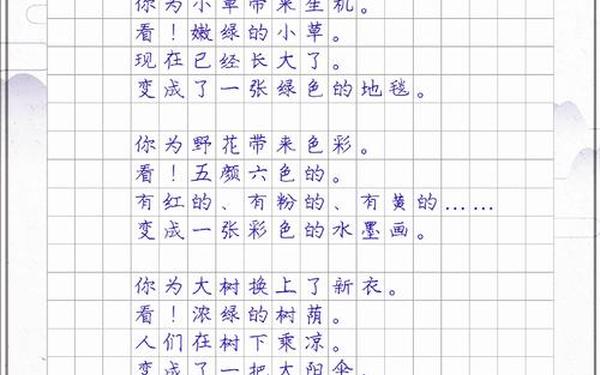 你为小草带来生机。
看！嫩绿的小草。
现在已经长大了。
变成了一张绿色的地毯。
你为野花带来色彩。
看！五颜六色的。
有红的、有粉的、有黄的……
变成一张彩色的水墨画。
你为大树换上了新衣。
看！浓绿的树荫。
人们在树下乘凉。
变成了一把太阳伞。